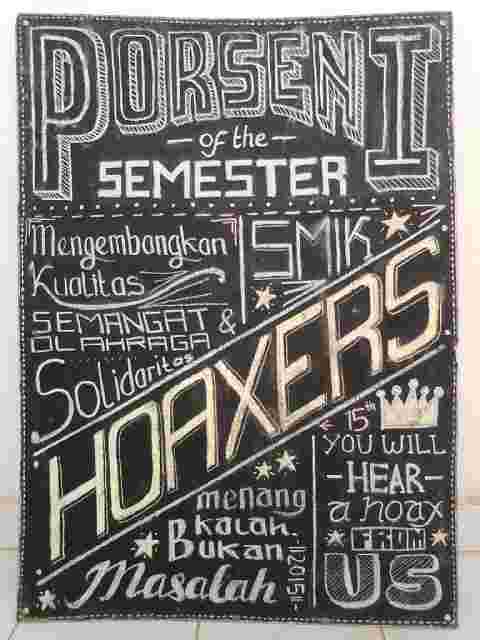 PORSENI
of the
SEMESTER
Mengembangkan
Kualitas
SEMANGAT &
OLAHRAGA
Solidaritas
SMIK
HOAXERS
15th
YOU WILL
HEAR
a hoax
FROM
US
menang
kalah
Bukan
Masalah